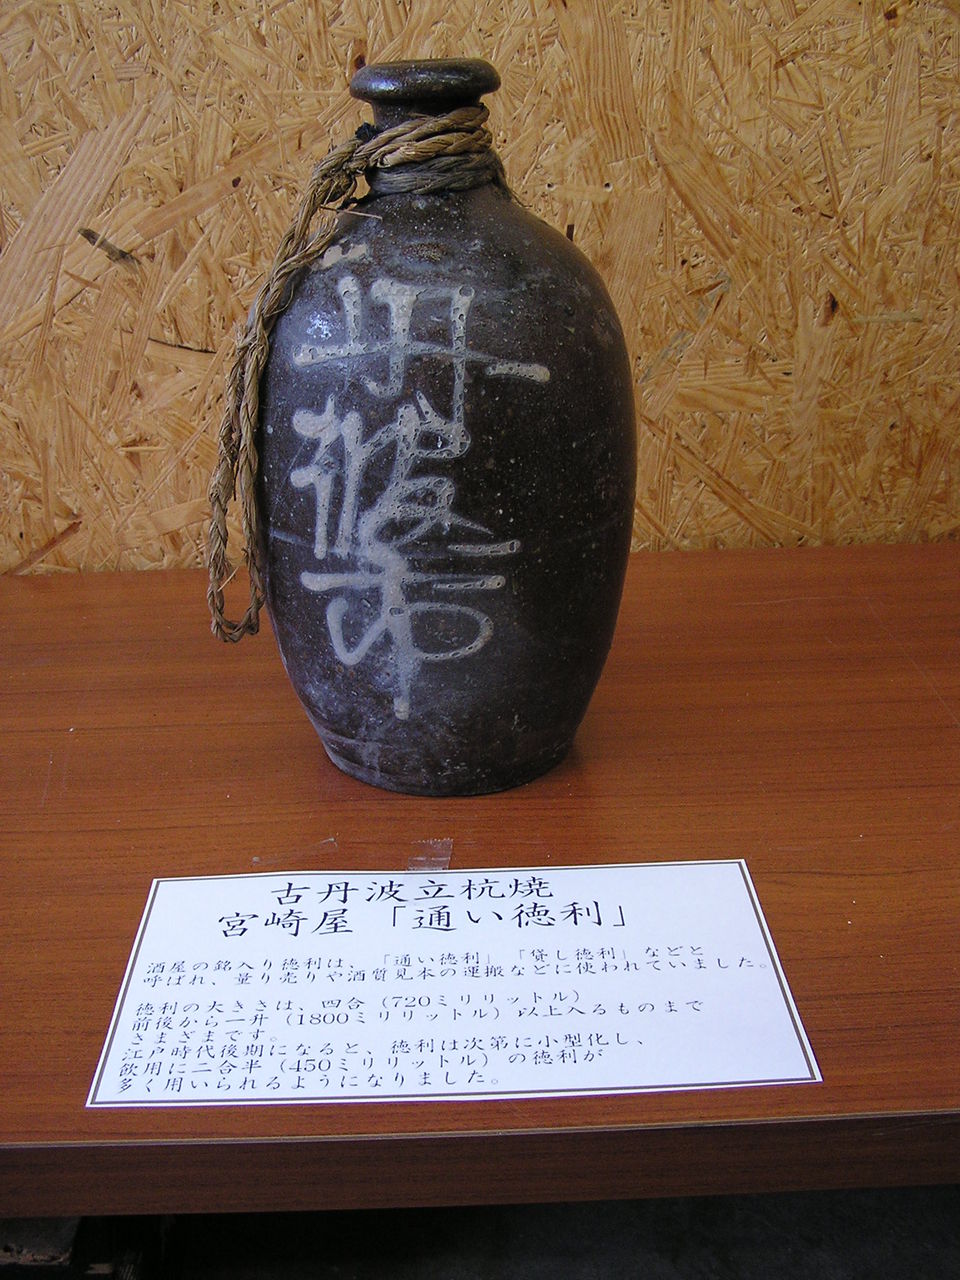 丹波
古丹波立杭焼
宮崎屋「通い徳利」
酒屋の銘入り徳利は、「通い徳利」「貸し徳利」などと
呼ばれ、量り売りや酒質見本の運搬などに使われていました。
徳利の大きさは、四合（720ミリリットル）
前後から一升（1800ミリリットル）以上入るものまで
さまざまです。
江戸時代後期になると、徳利は次第に小型化し、
飲用に二合半（450ミリリットル）の徳利が
多く用いられるようになりました。